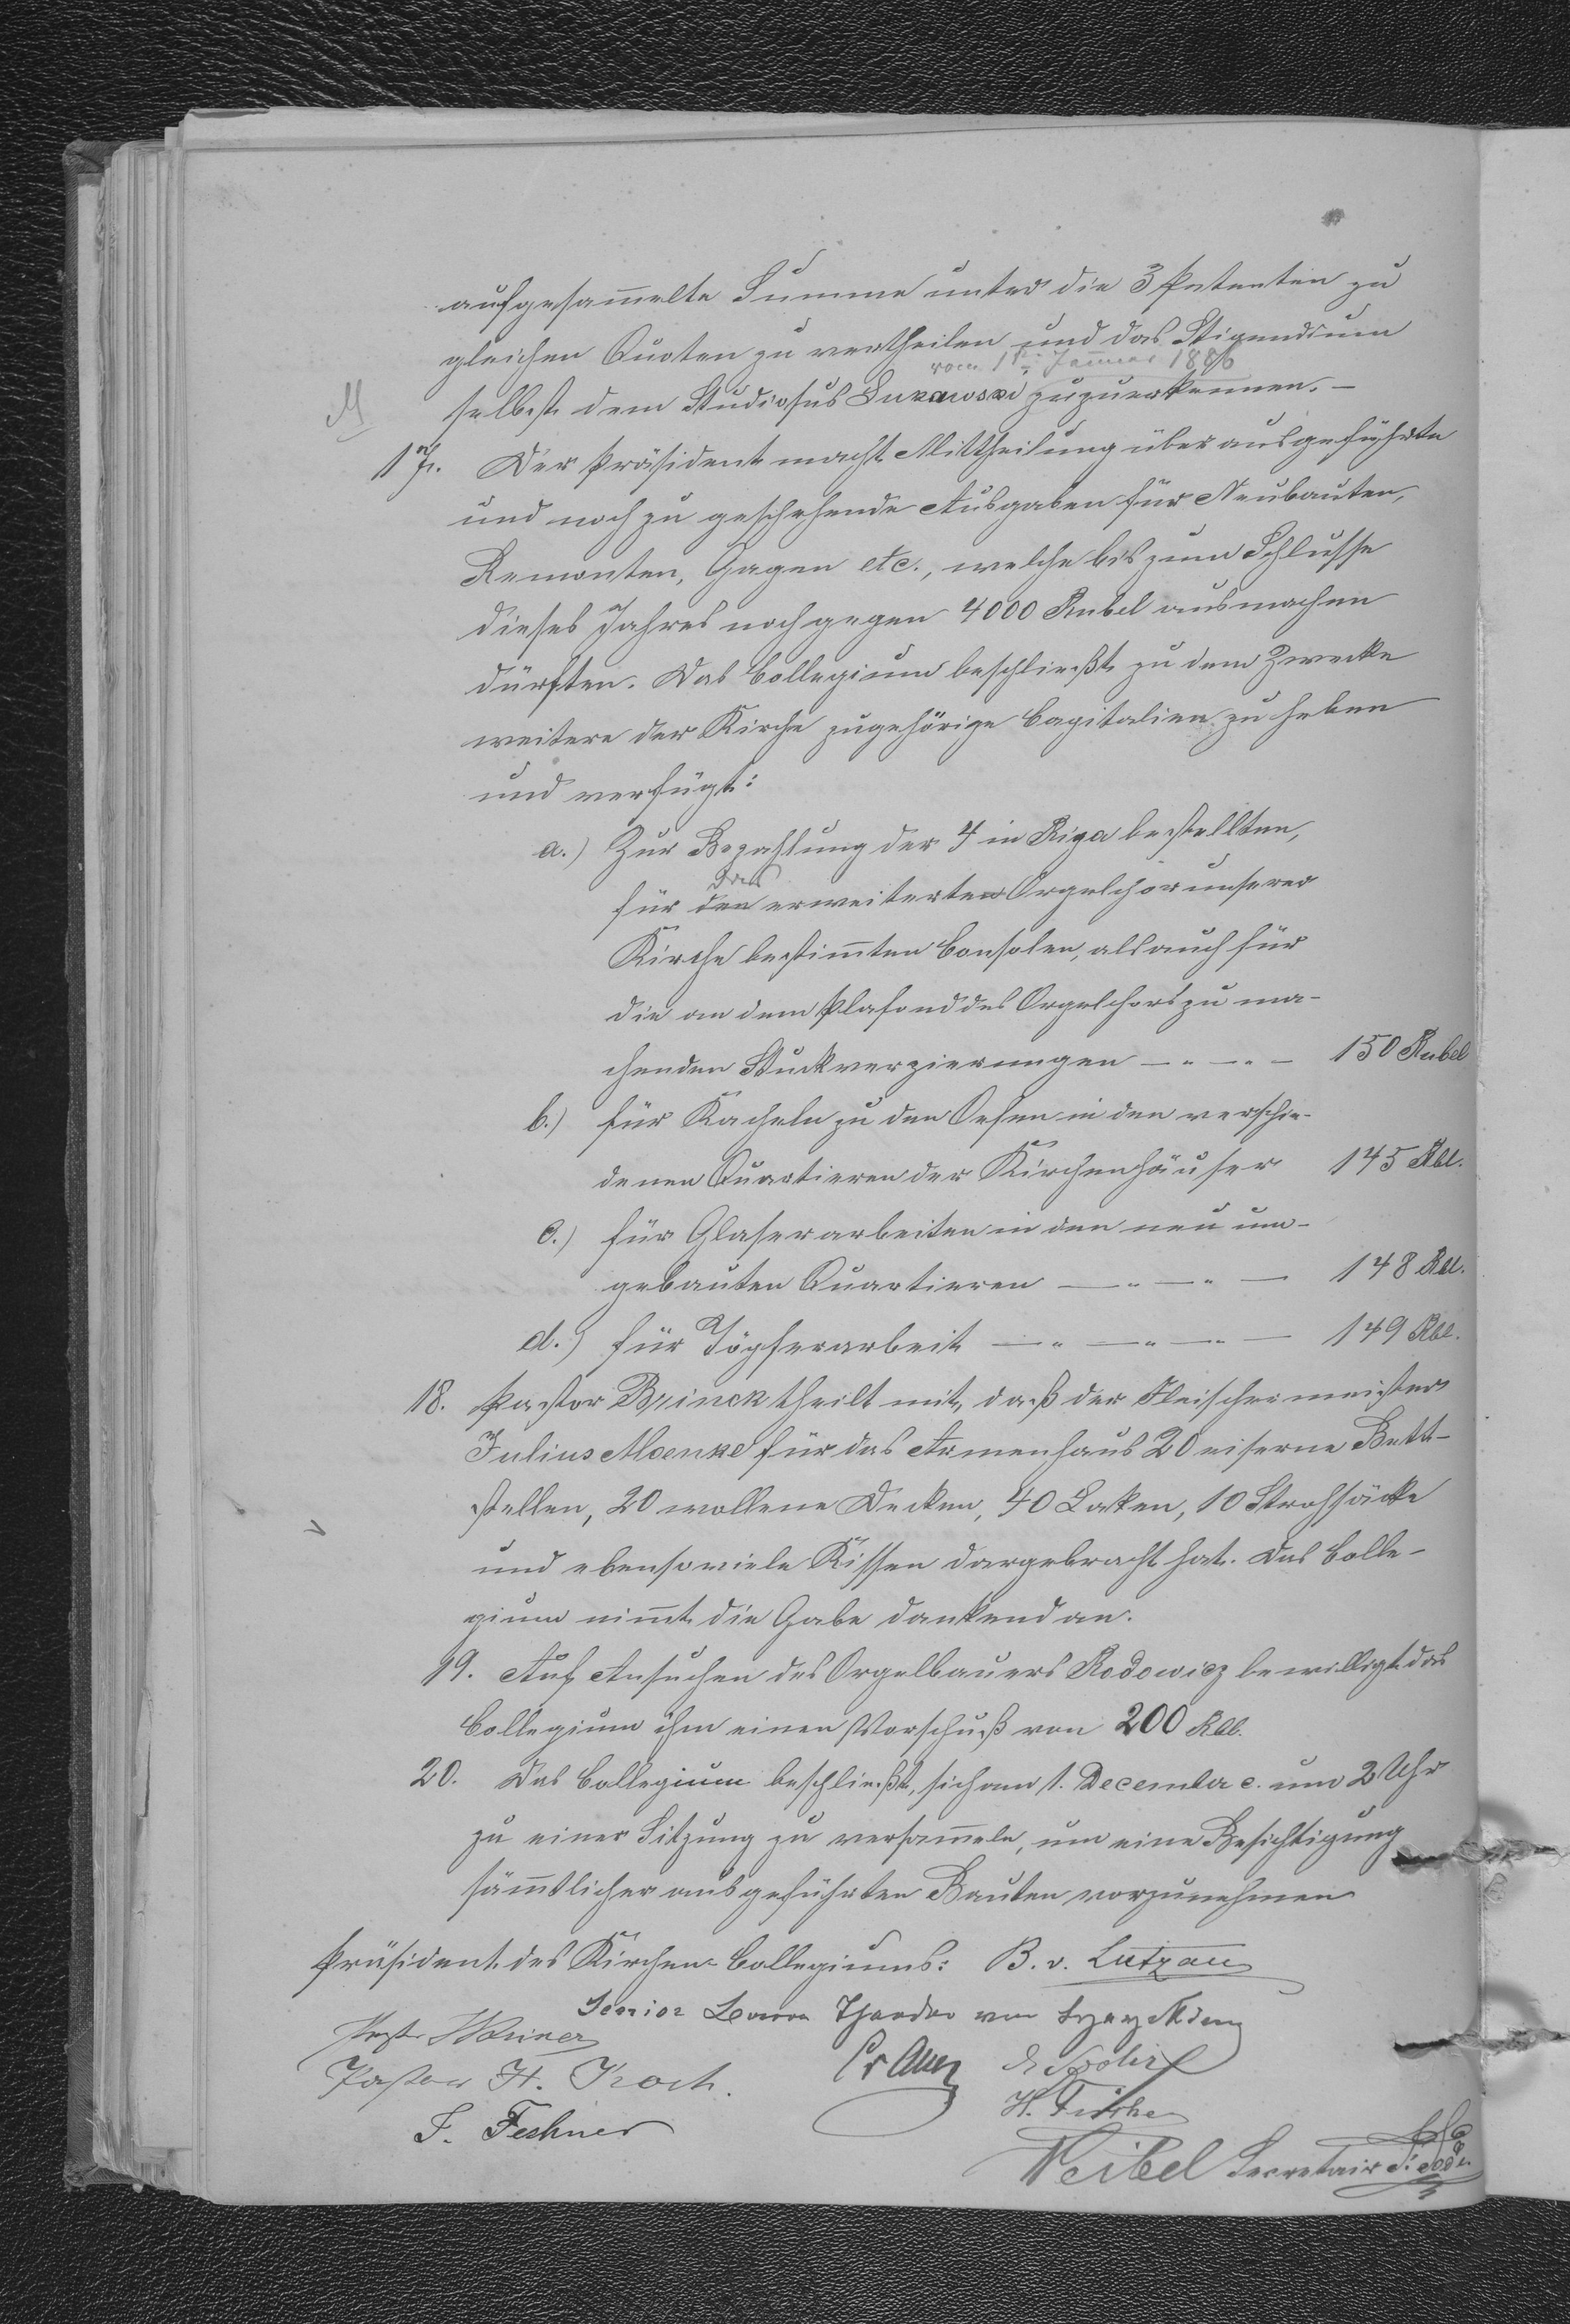 aufgesam̄elte Summe unter die 3 Petenten zu
gleichen Quoten zu vertheilen und das Stipendium
vom 1ten Januar 1886
selbst dem Studiosus Surawski zuzuerkennen. –
17. Der Präsident macht Mittheilung über ausgeführte
und noch zu geschehende Ausgaben für Neubauten,
Remonten, Gagen etc., welche bis zum Schlusse
dieses Jahres noch gegen 4000 Rubel ausmachen
dürften. Das Collegium beschließt zu dem Zwecke
weitere der Kirche zugehörige Capitalien zu heben
und verfügt:
a.) Zur Bezahlung der 4 in Riga bestellten,
das
für den erweiterten Orgelchor unserer
Kirche bestim̄ten Consolen, als auch für
die an dem Plafond des Orgelchors zu ma-
chenden Stuckverzierungen — " — " — 150 Rubel
b.) für Kacheln zu den Oefen in den verschie-
denen Quartieren der Kirchenhäuser 145 Rbl.
c.) für Glaserarbeiten in den neu um-
gebauten Quartieren — " — " — 148 Rbl.
d.) für Töpferarbeit — " — " — " — 149 Rbl.
18. Pastor Brinck theilt mit, daß der Fleischermeister
Julius Moenke für das Armenhaus 20 eiserne Bett-
stellen, 20 wollene Decken, 40 Laken, 10 Strohsäcke
und ebensoviele Kissen dargebracht hat. Das Colle-
gium nim̄t die Gabe dankend an.
19. Auf Ansuchen des Orgelbauers Rodowicz bewilligt das
Collegium ihm einen Vorschuß von 200 Rbl.
20. Das Collegium beschließt, sich am 1. December c. um 2 Uhr
zu einer Sitzung zu versam̄eln, um eine Besichtigung
säm̄tlicher ausgeführten Bauten vorzunehmen
Präsident des Kirchen-Collegiums: B. v. Lutzau
Senior Theodor von
Pastor H. Koch.
H. Fischer
F. Feshner
Weibel Secretair